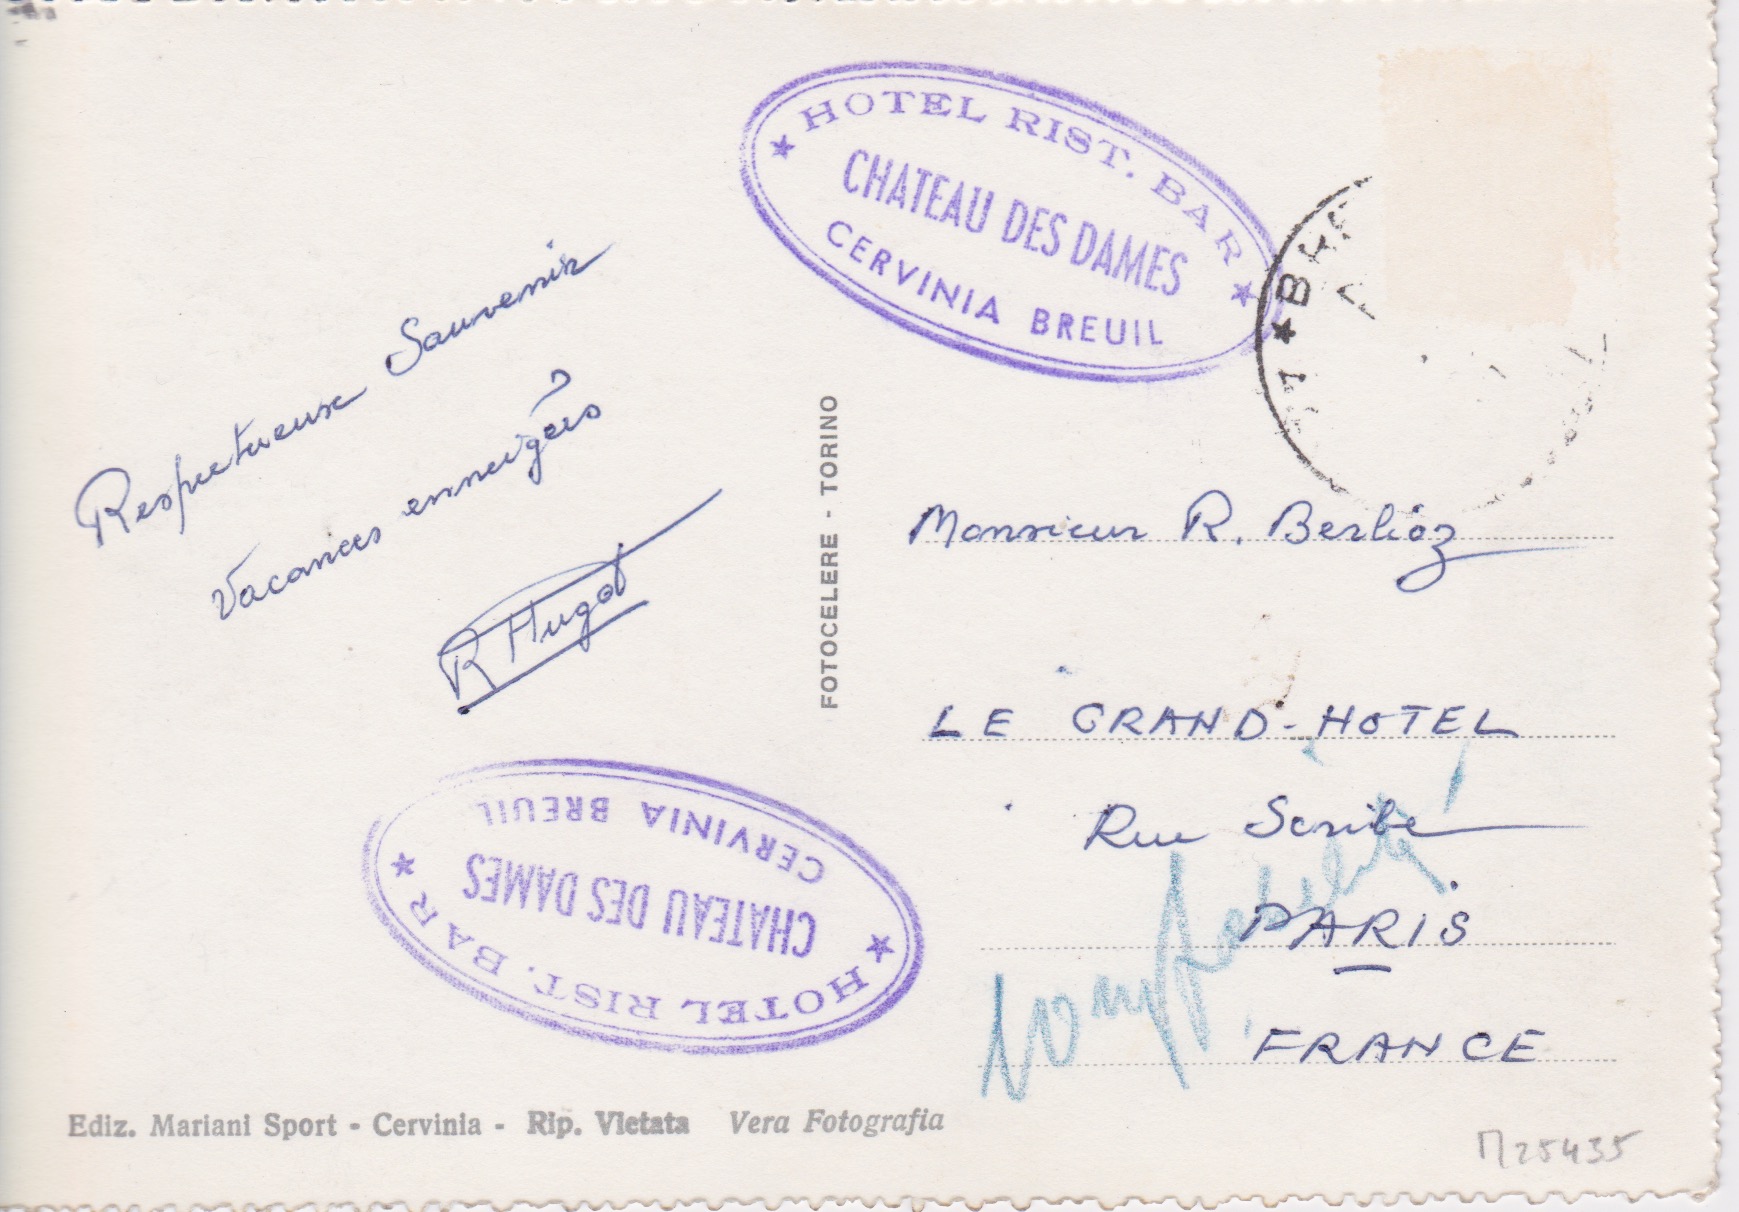 ★ HOTEL RIST. BAR ★
CHATEAU DES DAMES
CERVINIA BREUIL
Respectueux Souvenir
Vacances enneigées
R Hugot
FOTOCELERE - TORINO
Monsieur R. Berlioz
LE GRAND-HOTEL
Rue Scribe
PARIS
FRANCE
Comptabilité
★ HOTEL RIST. BAR ★
CHATEAU DES DAMES
CERVINIA BREUIL
Ediz. Mariani Sport - Cervinia - Rip. Vietata Vera Fotografia
25435